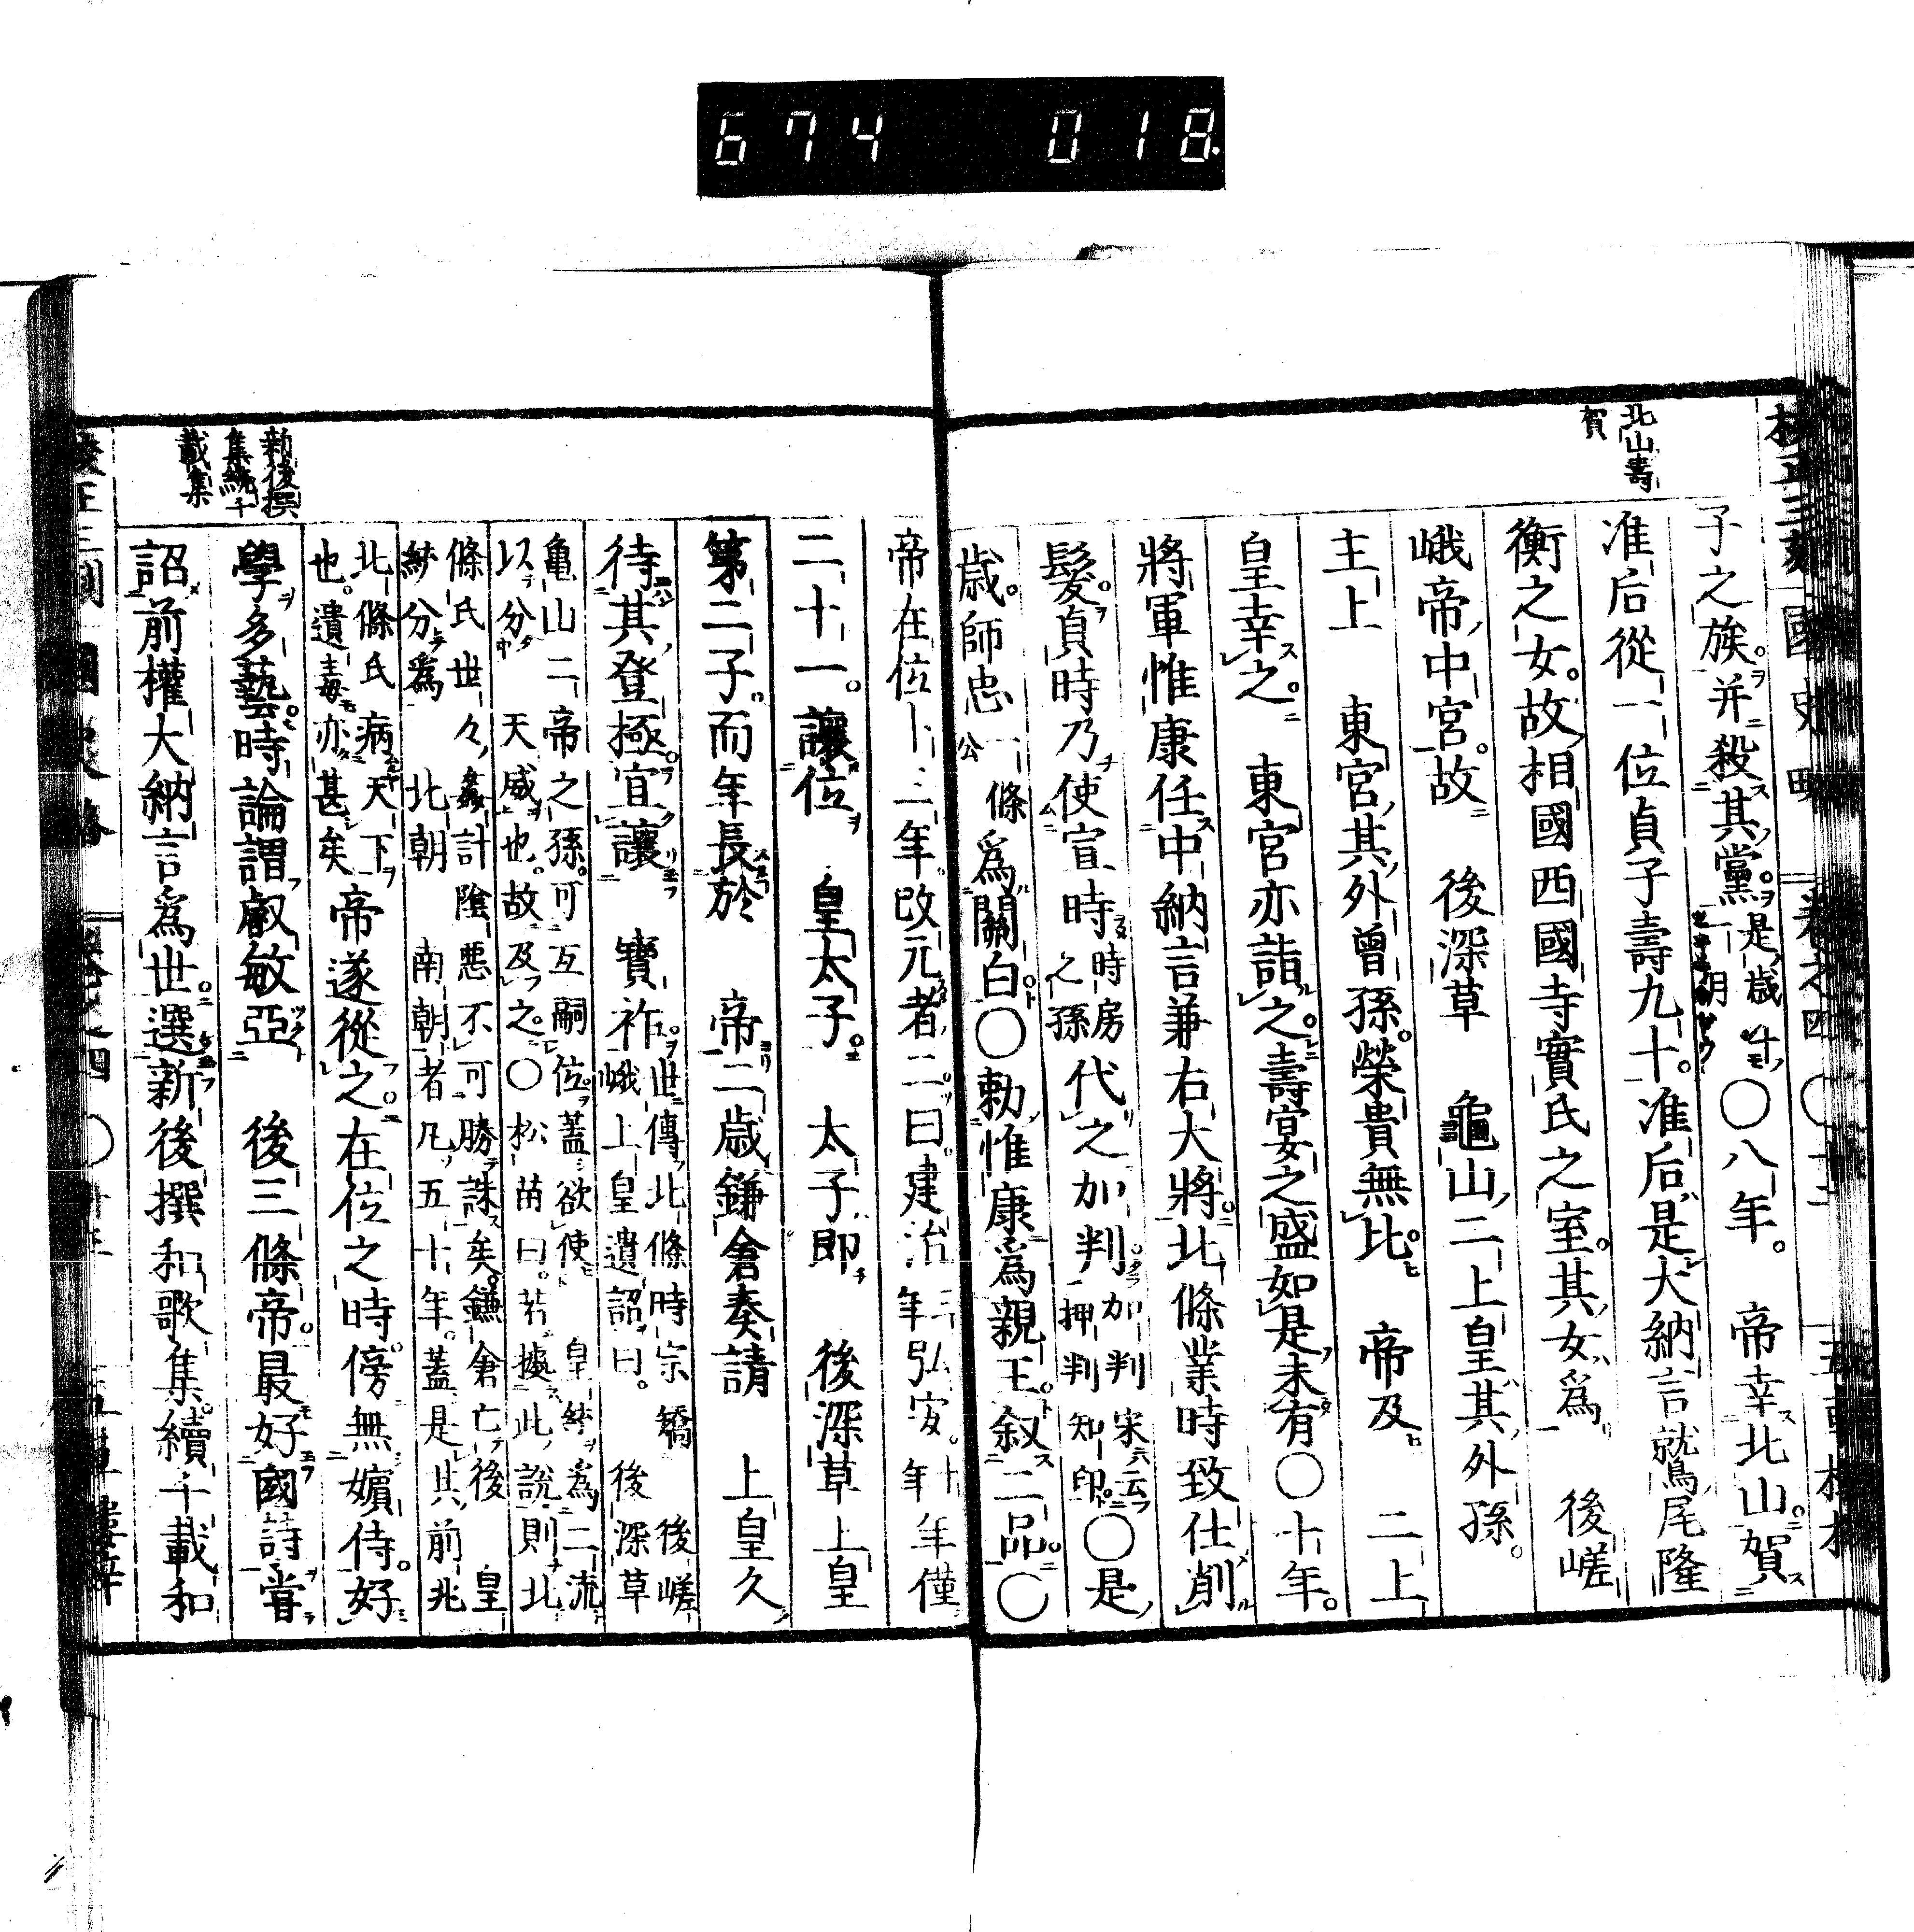 674 018
北山壽
賀
子之族并殺其黨是歲
一月〇八年。 帝幸北山賀
准后從一位貞子壽九十。准后是大納言鷲尾隆
衡之女。故相國西園寺實氏之室。其女爲 後嵯
峨帝中宮。故 後深草 龜山二上皇其外孫。
主上 東宮其外曾孫。榮貴無比。 帝及 二上
皇幸之。 東宮亦詣之。壽宴之盛如是未有〇十年。
將軍惟康任中納言兼右大將。北條業時致仕削
髮。貞時乃使宣時時房之孫代之加判加判宋云押判知印〇是
歲。師忠一條公爲關白〇勅惟康爲親王。叙二品。〇
帝在位十三年。改元者二。曰建治三年弘安。十年年僅
二十一。讓位 皇太子。 太子即 後深草上皇
第二子。而年長於 帝二歲。鎌倉奏請 上皇久
待其登極。宜讓 寶祚。世傳北條時宗矯 後嵯
峨上皇遺詔曰。 後深草
龜山二帝之孫。可互嗣位。蓋欲使 皇統爲二流
以分 天威也。故及之。〇松苗曰。若據此說則北
條氏世々姦計陰惡不可勝誅矣。鎌倉亡後 皇
統分爲 北朝 南朝者凡五十年。蓋是其前兆
北條氏病天下
也。遺毒亦甚矣 帝遂從之。在位之時。傍無嬪侍。好
學多藝。時論謂叡敏亞 後三條帝。最好國詩。嘗
詔前權大納言爲世。選新後撰和歌集。續千載和
北山壽
賀
新後撰
集續千
載集